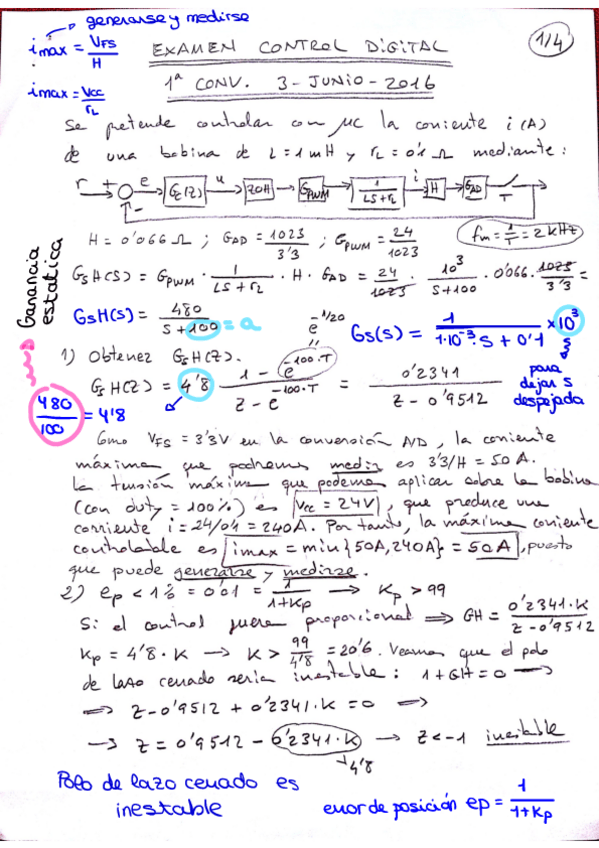 generarse y medirse
imax = VFS / H
imax = Vcc / rL
EXAMEN CONTROL DIGITAL
1/4
1ª CONV. 3-JUNIO-2016
Se pretende controlar con μC la corriente i(A)
de una bobina de L=1mH y rL=0'1 Ω mediante:
r + - e Gc(Z) u ZOH GPWM 1/(LS+rL) i H GAD T
H = 0'066 Ω ; GAD = 1023/3'3 ; GPWM = 24/1023 fm = 1/T = 2 kHz
Ganancia estatica
GsH(S) = GPWM · 1/(LS+rL) · H · GAD = 24/1023 · 10³/(S+100) · 0'066 · 1023/3'3 =
GsH(s) = 480/(S+100) = a
e^(-1/20)
Gs(s) = 1/(1·10⁻³·S + 0'1) ×10³
1) Obtener GsH(Z).
GsH(Z) = 4'8 (1 - e^(-100·T))/(Z - e^(-100·T)) = 0'2341/(Z - 0'9512)
para dejar s despejada
480/100 = 4'8
Como VFS = 3'3V en la conversión A/D, la corriente
máxima que podremos medir es 3'3/H = 50 A.
La tensión máxima que podemos aplicar sobre la bobina
(con duty = 100%) es Vcc = 24V, que produce una
corriente i = 24/0'1 = 240A. Por tanto, la máxima corriente
controlable es imax = min{50A, 240A} = 50A, puesto
que puede generarse y medirse.
2) ep < 1% = 0'01 = 1/(1+Kp) → Kp > 99
Si el control fuera proporcional ⇒ GH = 0'2341·K/(Z-0'9512)
Kp = 4'8·K → K > 99/4'8 = 20'6. Veamos que el polo
de lazo cerrado sería inestable: 1+GH=0 →
⇒ Z-0'9512 + 0'2341·K = 0 ⇒
→ Z = 0'9512 - 0'2341·K → Z<-1 inestable
4'8
Polo de lazo cerrado es
inestable
error de posición ep = 1/(1+Kp)